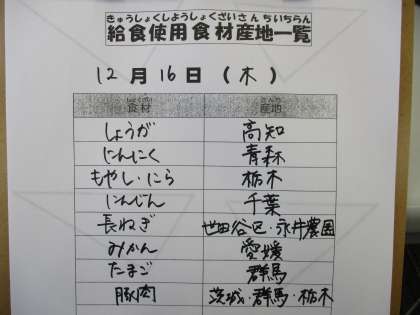 きゅうしょくしようしょくざいさんちいちらん
給食使用食材産地一覧
12月16日(木)
しょくざい さんち
食材 産地
しょうが 高知
にんにく 青森
もやし・にら 栃木
にんじん 千葉
長ねぎ 世田谷区・永井農園
みかん 愛媛
たまご 群馬
豚肉 茨城・群馬・栃木